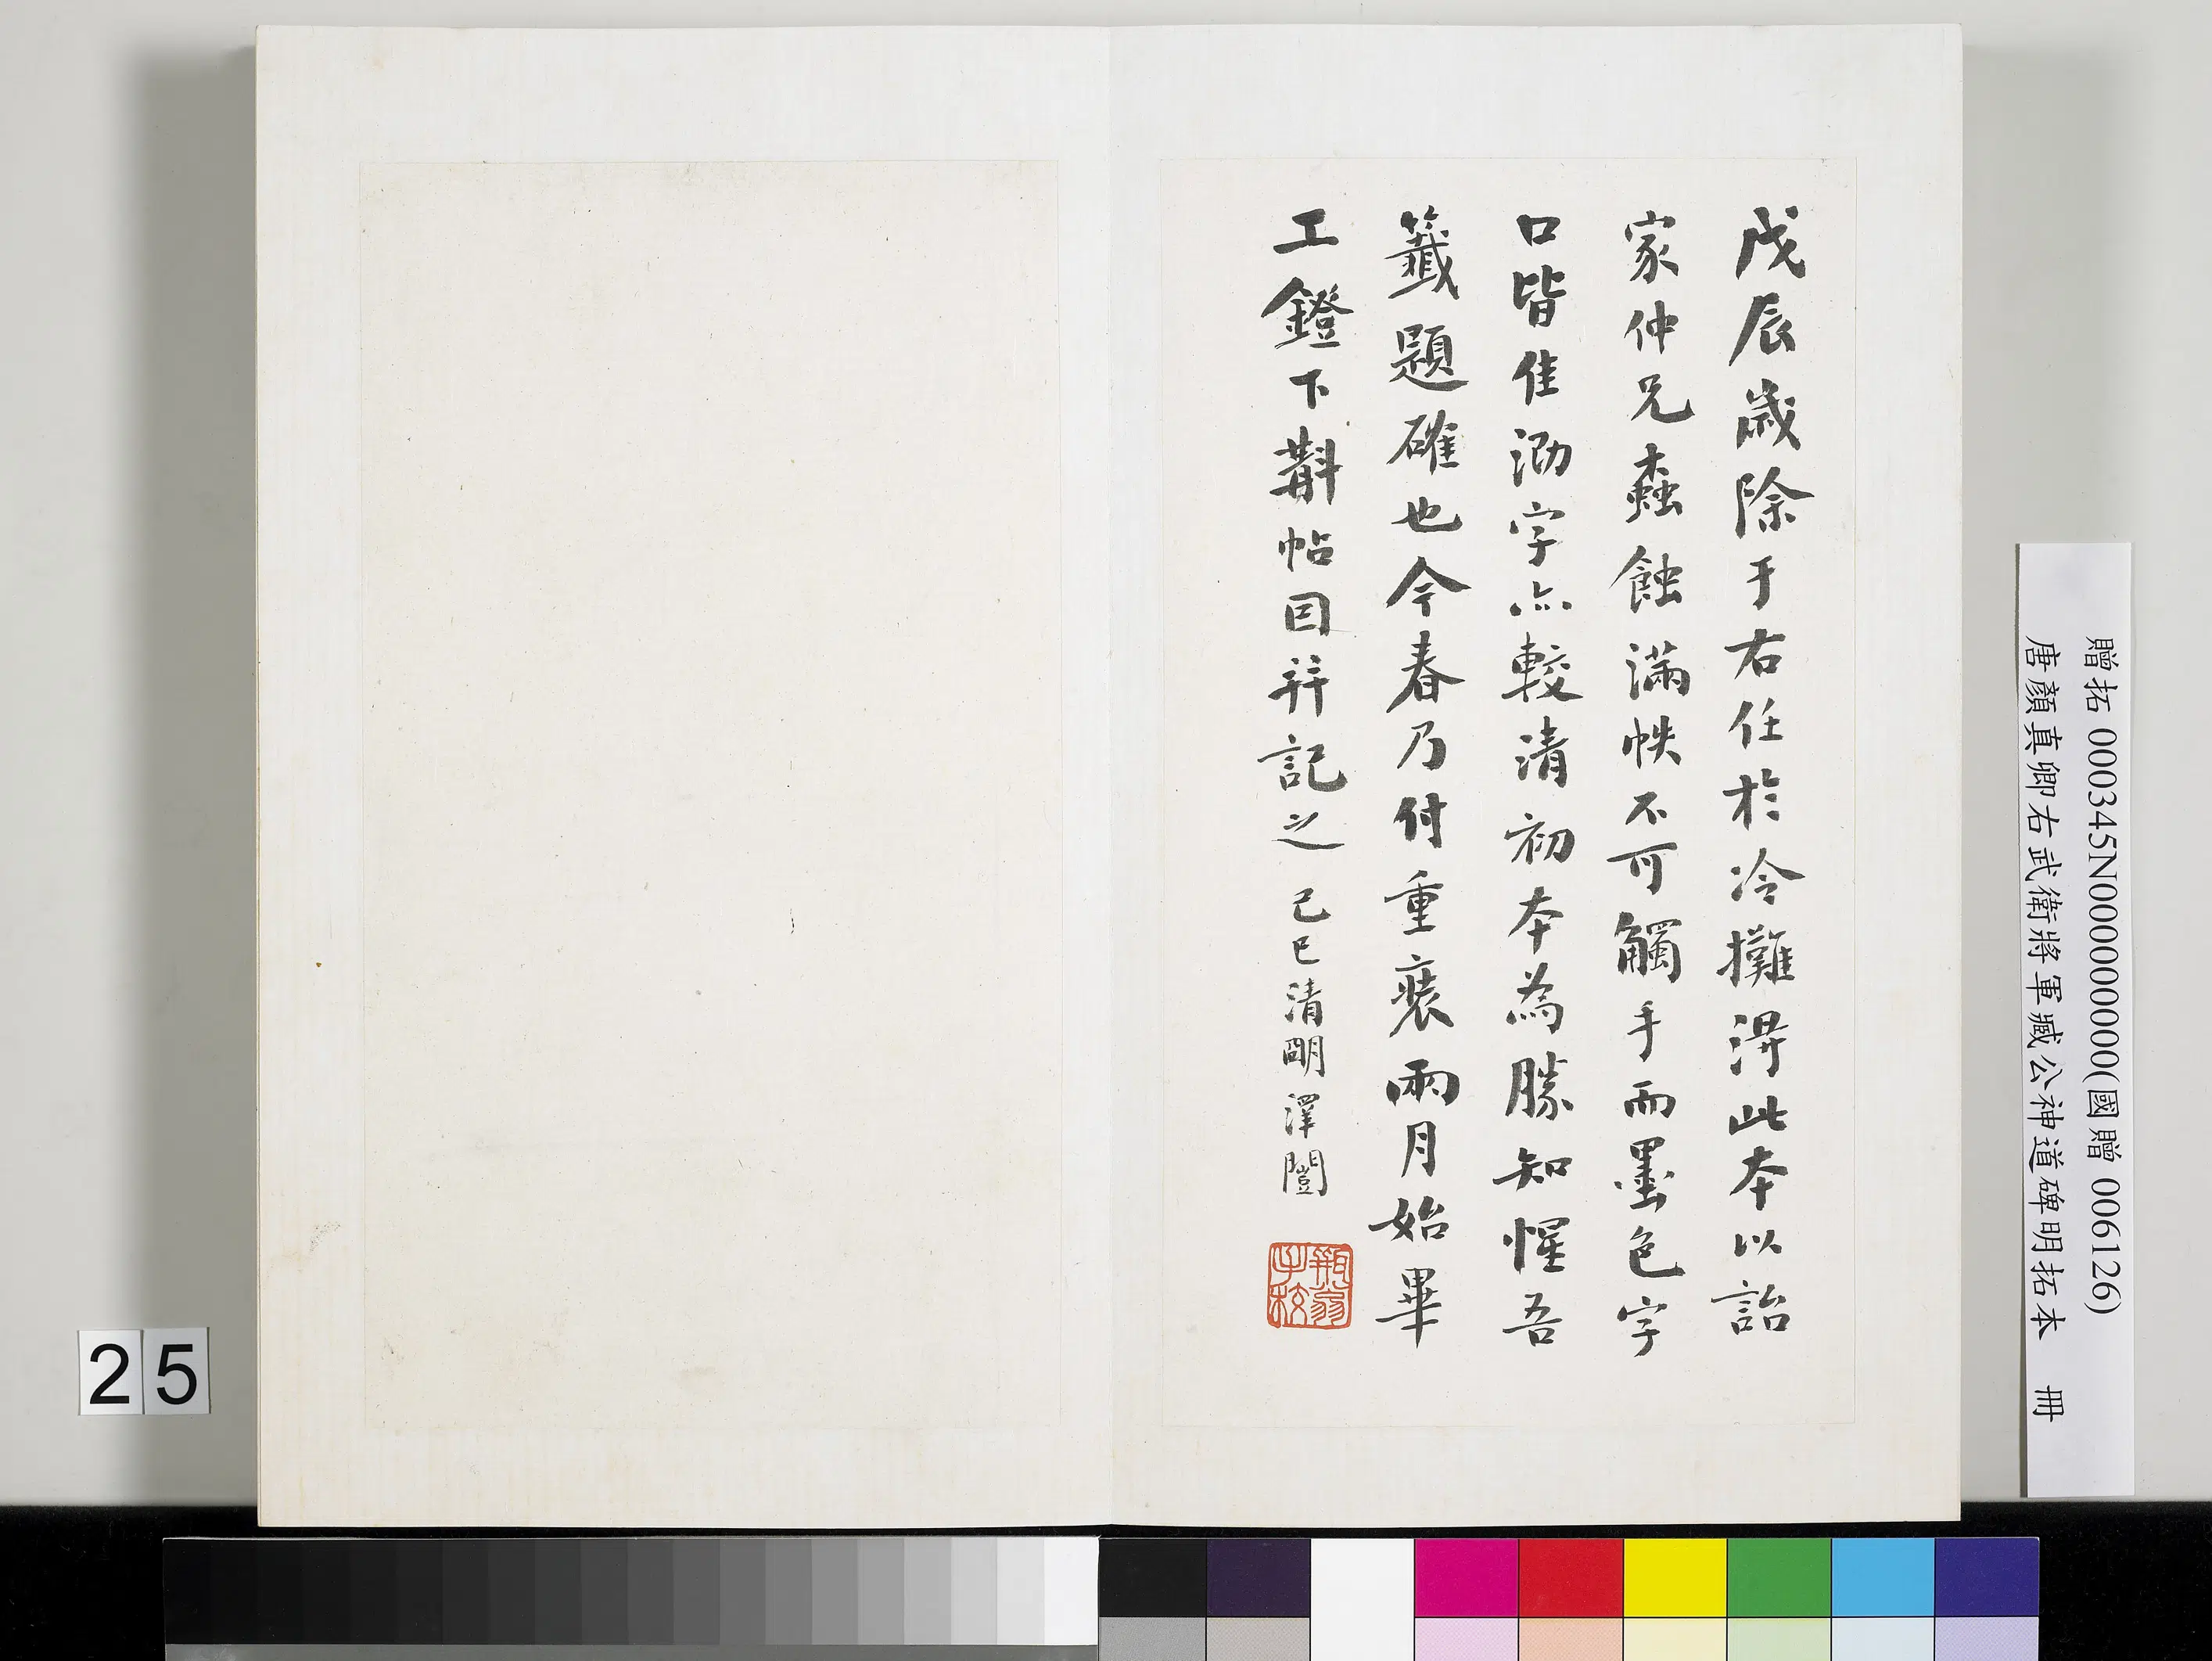 戊辰歲除于右任於冷攤得此本以詒
家仲兄蠹蝕滿帙不可觸手而墨色字
口皆佳泐字亦較清初本為勝知惺吾
籤題確也今春乃付重裝兩月始畢
工鐙下斠帖因并記之 己巳清明澤闓
瓶翁
子孫
贈拓 000345N000000000(國贈 006126)
唐顏真卿右武衛將軍臧公神道碑明拓本 冊
25